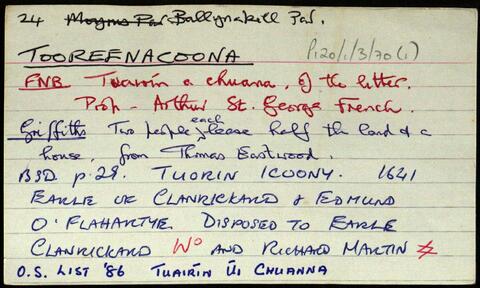 24 Moyrus Par Ballynakill Par.
TOOREENACOONA P120/1/3/70(1)
FNB Tuairín a chuana, of the litter.
Prop - Arthur St. George French.
Griffiths Two people each lease half the land & a
house, from Thomas Eastwood.
BSD p.29. TUORIN ICOONY. 1641
EARLE OF CLANRICKARD & EDMUND
O'FLAHARTYE. DISPOSED TO EARLE
CLANRICKARD Wº AND RICHARD MARTIN
O.S. LIST '86 TUAIRÍN UÍ CHUANNA